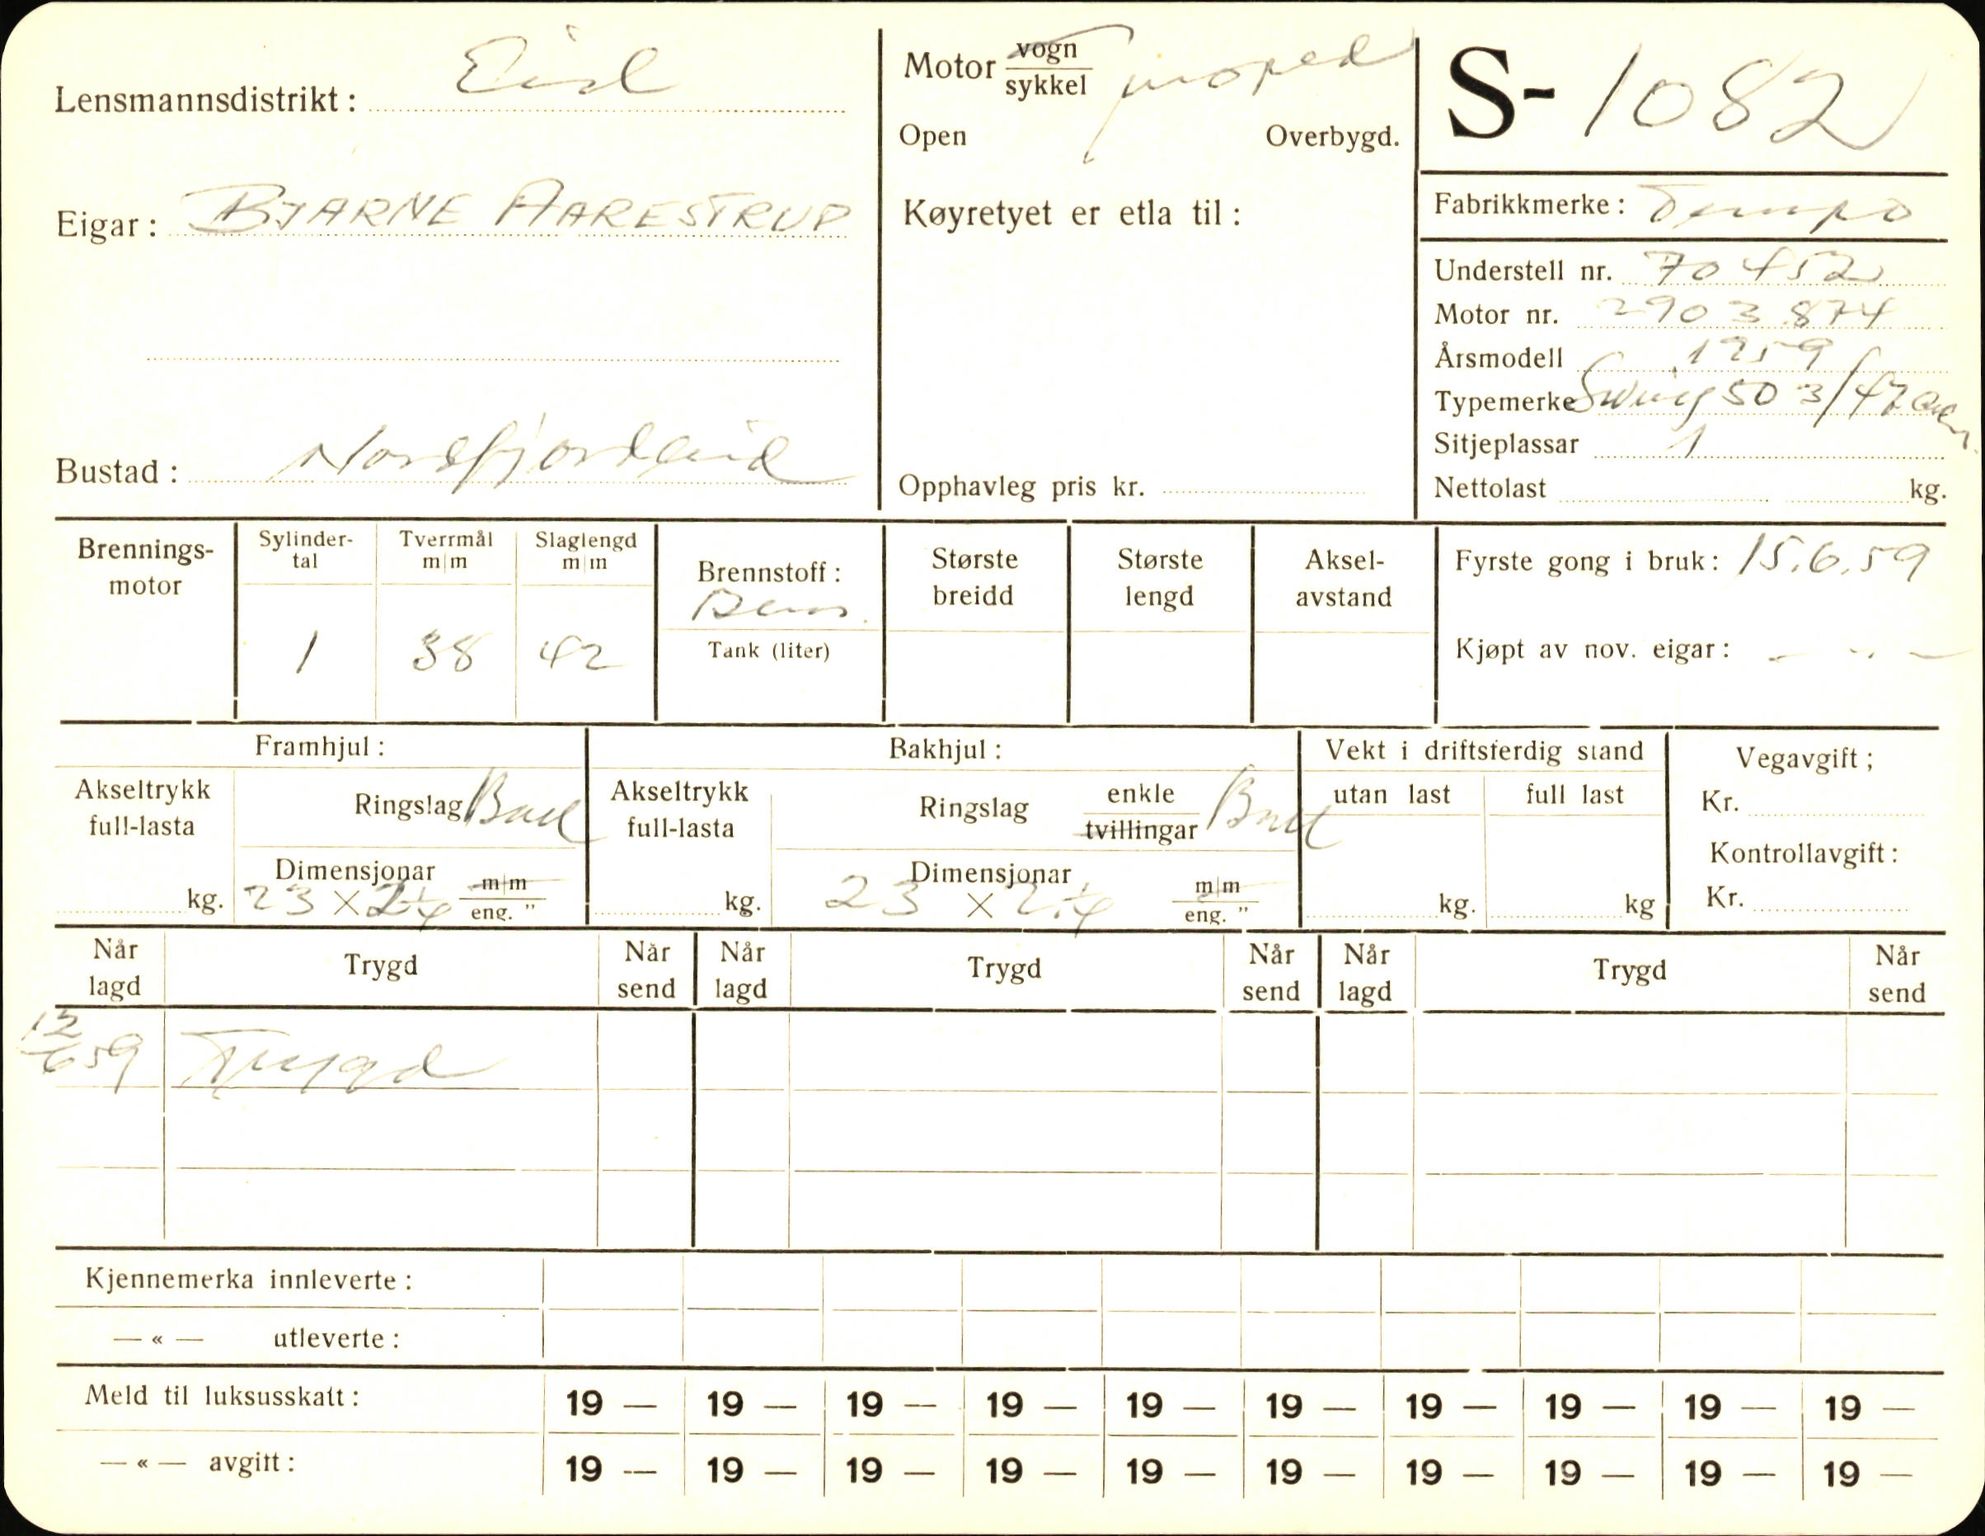 Lensmannsdistrikt: Eid
Motor vogn / sykkel moped
Open Overbygd.
S- 1082
Eigar: BJARNE AARESTRUP
Køyretyet er etla til:
Fabrikkmerke: Tempo
Understell nr. 70452
Motor nr. 2903874
Årsmodell 1959
Typemerke Swing 50 3/47
Sitjeplassar 1
Bustad: Nordfjordeid
Opphavleg pris kr.
Nettolast kg.
Brennings-
motor
Sylinder-
tal
1
Tverrmål
m/m
38
Slaglengd
m/m
42
Brennstoff:
Bens.
Tank (liter)
Største
breidd
Største
lengd
Aksel-
avstand
Fyrste gong i bruk: 15.6.59
Kjøpt av nov. eigar: — " —
Framhjul:
Akseltrykk
full-lasta
kg.
Ringslag Ball
Dimensjonar
23 × 2 1/4 m/m
eng. "
Bakhjul:
Akseltrykk
full-lasta
kg.
Ringslag enkle
tvillingar Ball
Dimensjonar
23 × 2 1/4 m/m
eng. "
Vekt i driftsferdig stand
utan last full last
kg. kg
Vegavgift;
Kr.
Kontrollavgift:
Kr.
Når
lagd Trygd Når
send Når
lagd Trygd Når
send Når
lagd Trygd Når
send
12/6 59 Trygd
Kjennemerka innleverte:
— « — utleverte:
Meld til luksusskatt: 19 — 19 — 19 — 19 — 19 — 19 — 19 — 19 — 19 — 19 —
— « — avgitt: 19 — 19 — 19 — 19 — 19 — 19 — 19 — 19 — 19 — 19 —